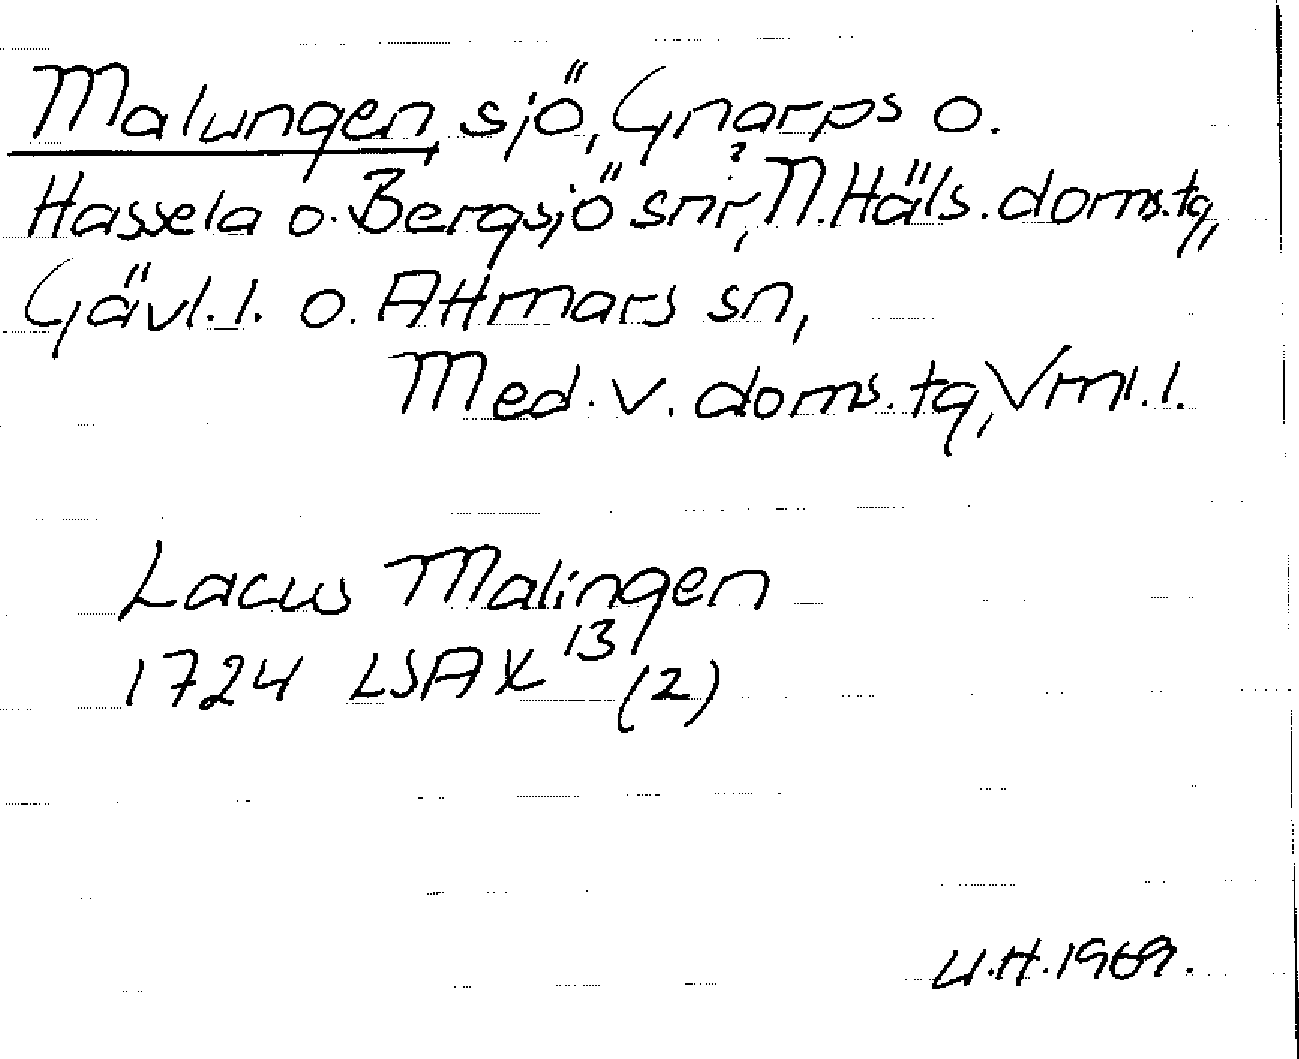 Malungen, sjö, Gnarps o.
Hassela o. Bergsjö snr, N. Häls. doms.tg,
Gävl. l. o. Attmars sn,
Med. v. doms. tg, Vrnl. l.
Lacus Malingen
1724 LSAX 13 (2)
U.H. 1969.